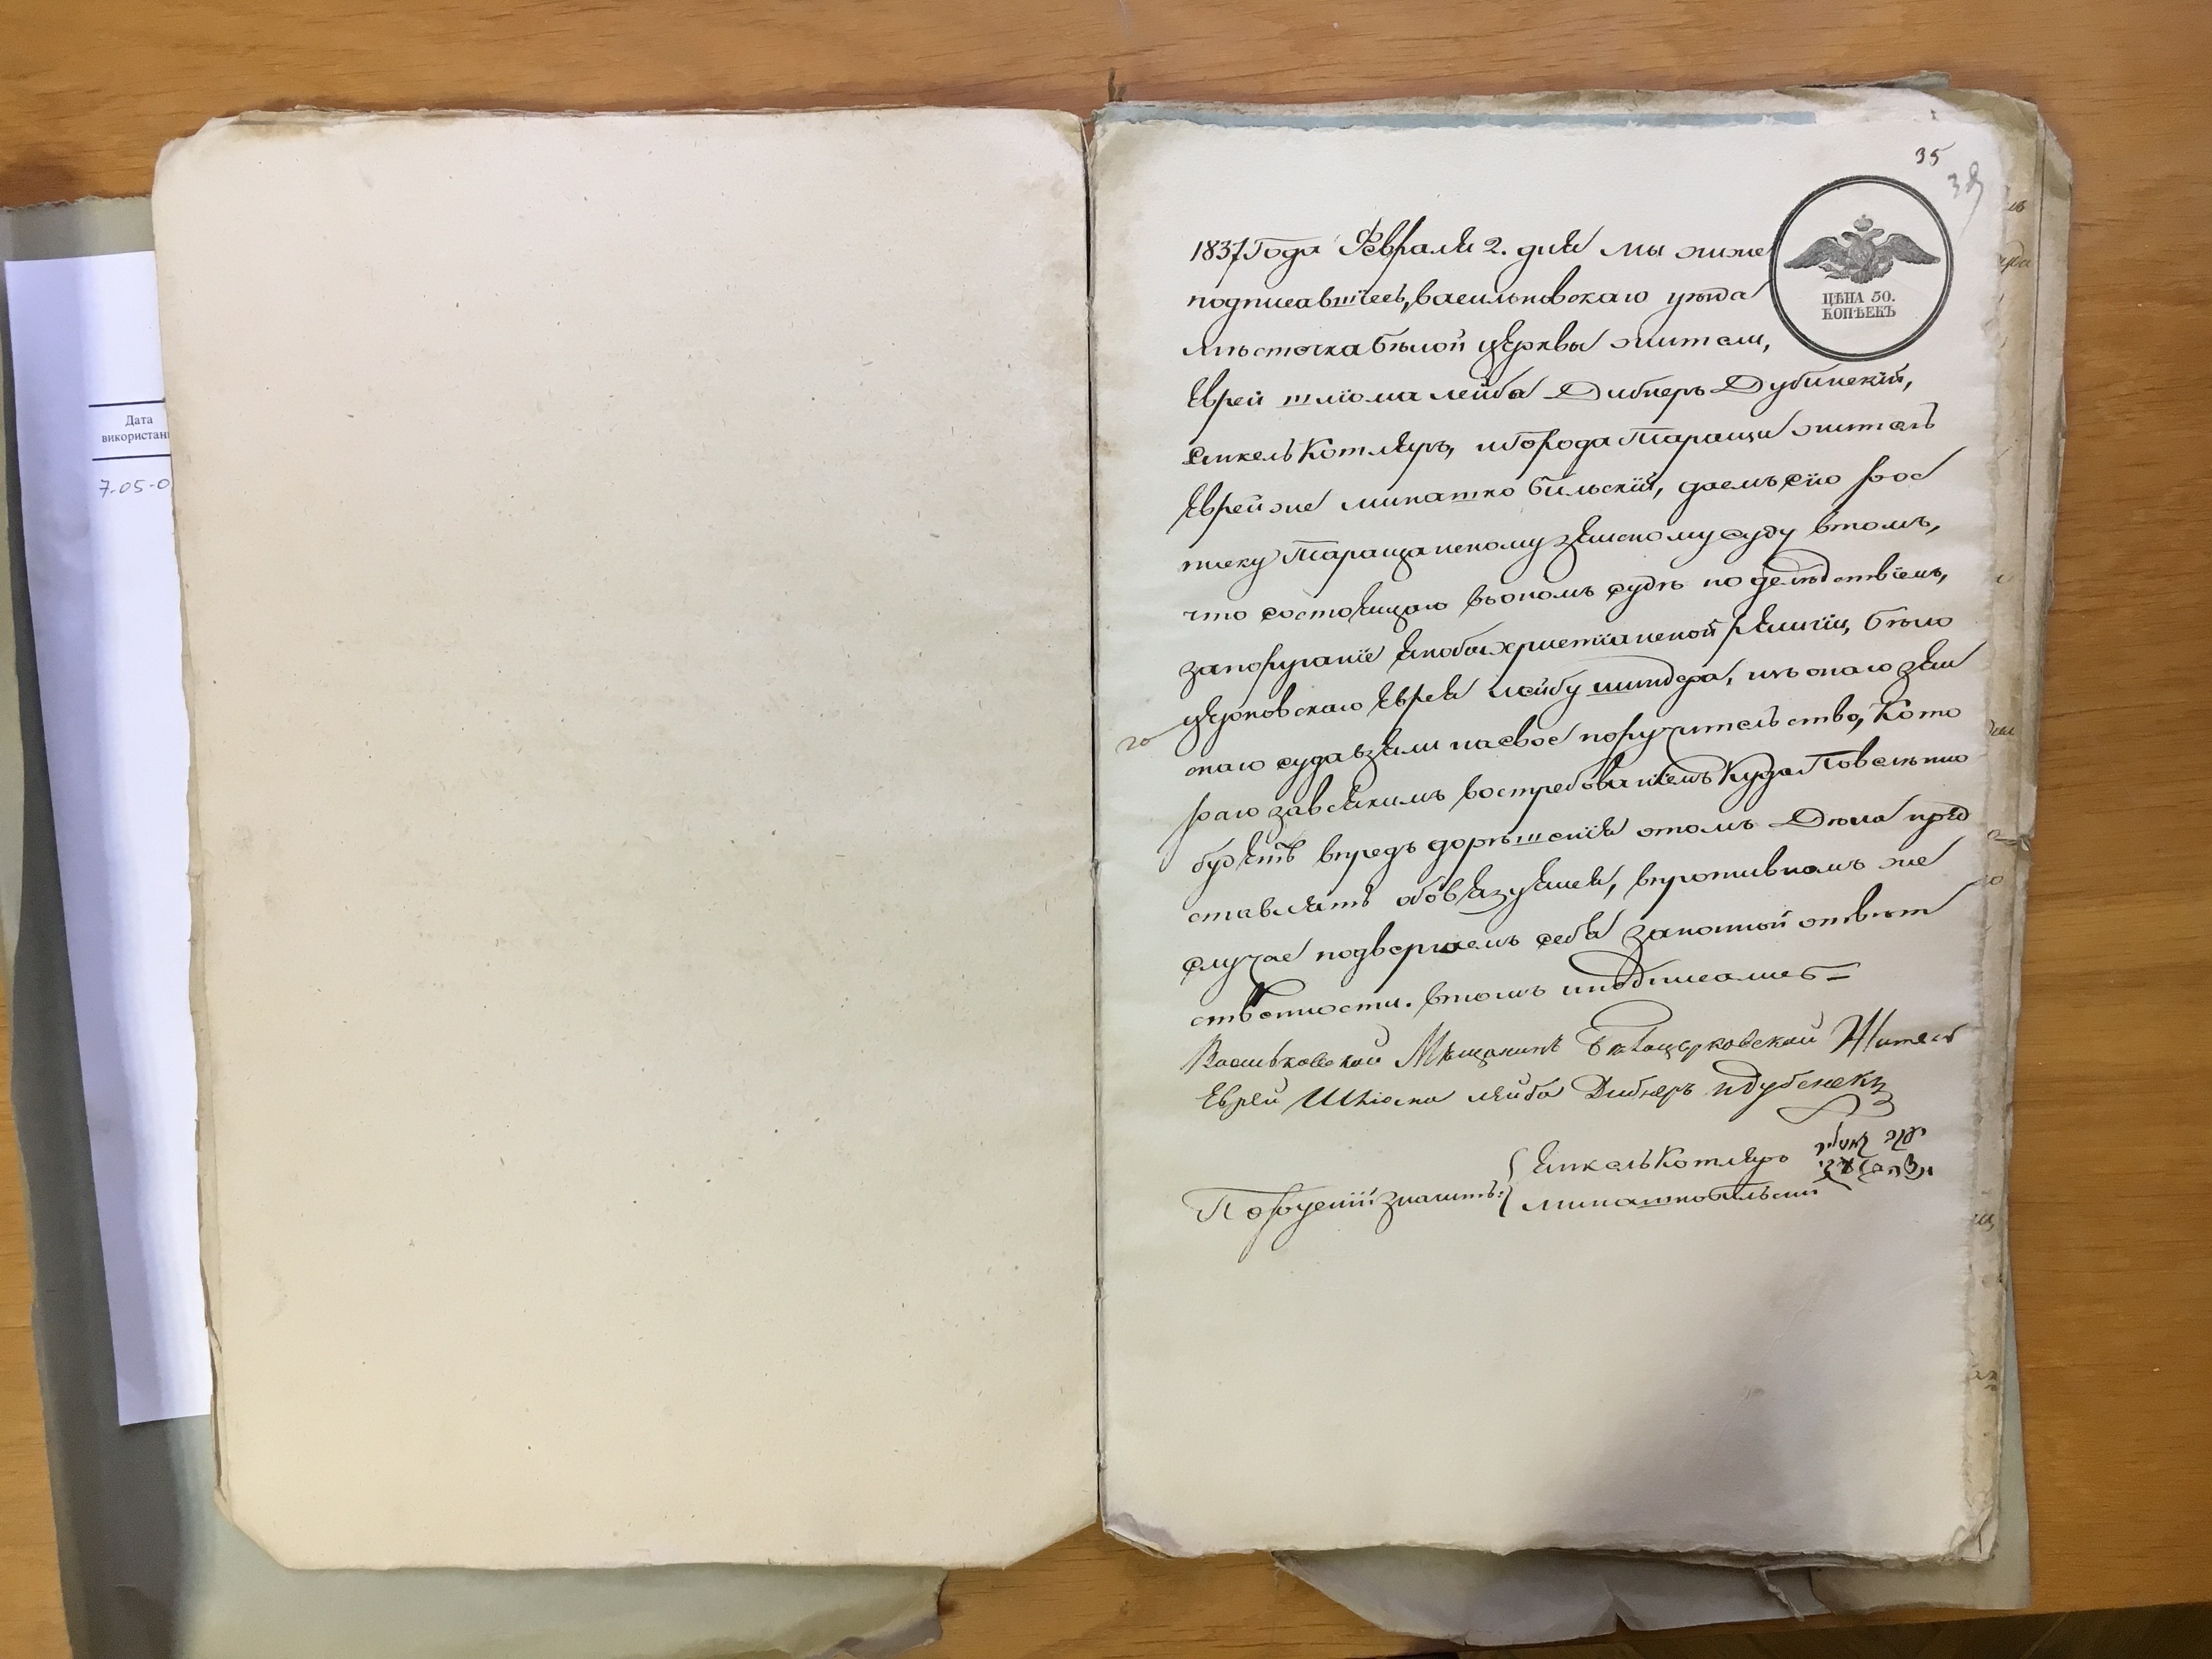 Дата
використан
7-05-0
35
38
ЦѢНА 50.
КОПѢЕКЪ
1837 Года Февраля 2. дня мы ниже
подписавшіеся, васильковскаго уѣзда
мѣсточка бѣлой церквы жители,
Евреи шліома лейба Дибнеръ Дубинскій,
емкель Котляръ, и города Таращи житель
Еврей же минашко бильскій, даемъ сію рос
писку Таращанскому земскому суду втомъ,
что состоящаго въ ономъ судѣ по
запоруганіе якобы христіанской религіи, бѣло
церковскаго Еврея лейбу изъ онаго зем
скаго суда взяли на свое поручительство, Кото
раго за всякимъ востребованіемъ Куда Повелѣно
будетъ впредъ дорѣшенія этомъ Дѣла пред
ставлять обовязуемся, впротивномъ же
случае подвергаемъ себя законной отвѣт
ственности. втомъ и подписались =
Васильковской Мѣщанинъ Бѣлоцерковской Житель
Еврей Шліома лейба Дибнеръ
емкель Котляръ
минашко бильский